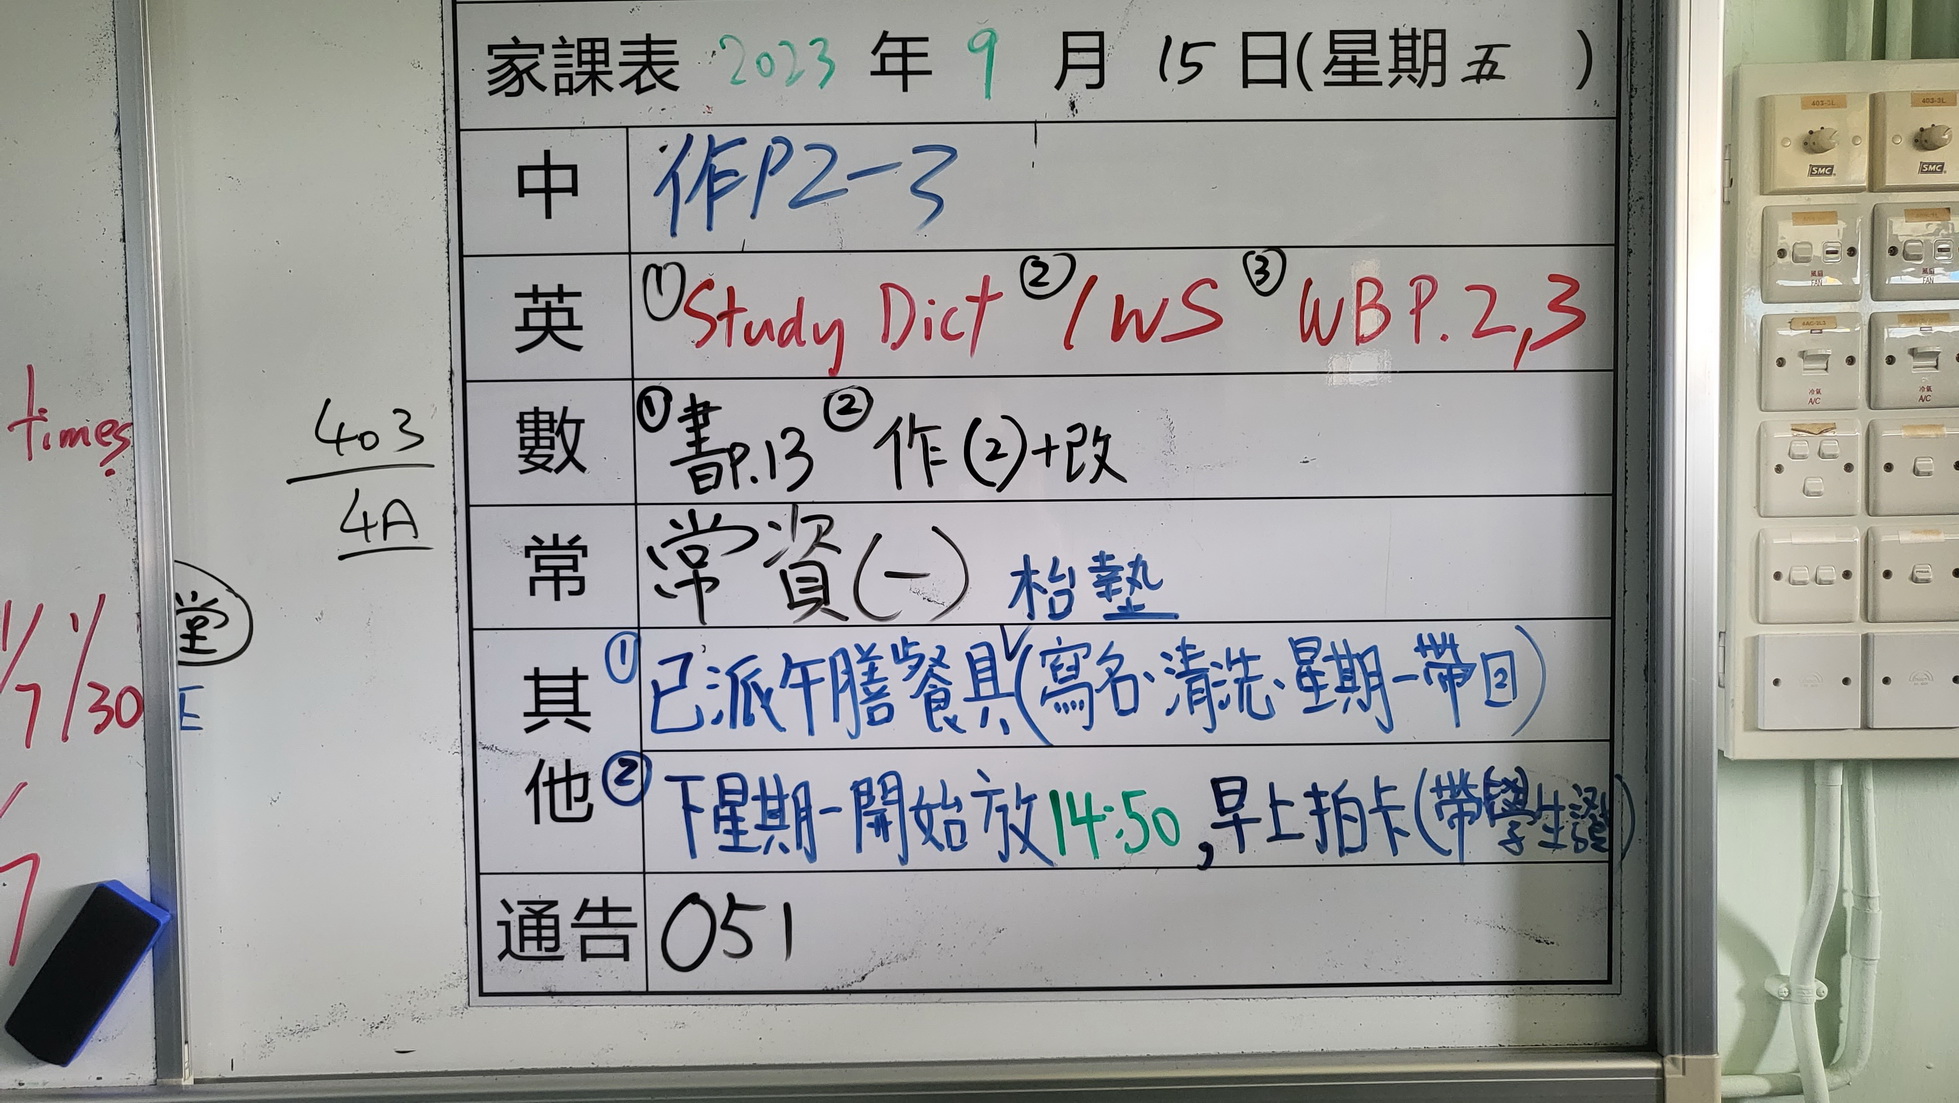 家課表 2023 年 9 月 15 日(星期五 )
中 作P2-3
英 ①Study Dict ②/WS ③WB P.2,3
數 ①書P.13 ②作(2)+改
常 常資(一) 枱墊
其他 ①已派午膳餐具(寫名、清洗、星期一帶回)
②下星期一開始放14:50,早上拍卡(帶學生證)
通告 051
times
403
4A
堂
E
7/30
7
403-3L
SMC
SMC
風扇
FAN
風扇
FAN
冷氣
A/C
冷氣
A/C